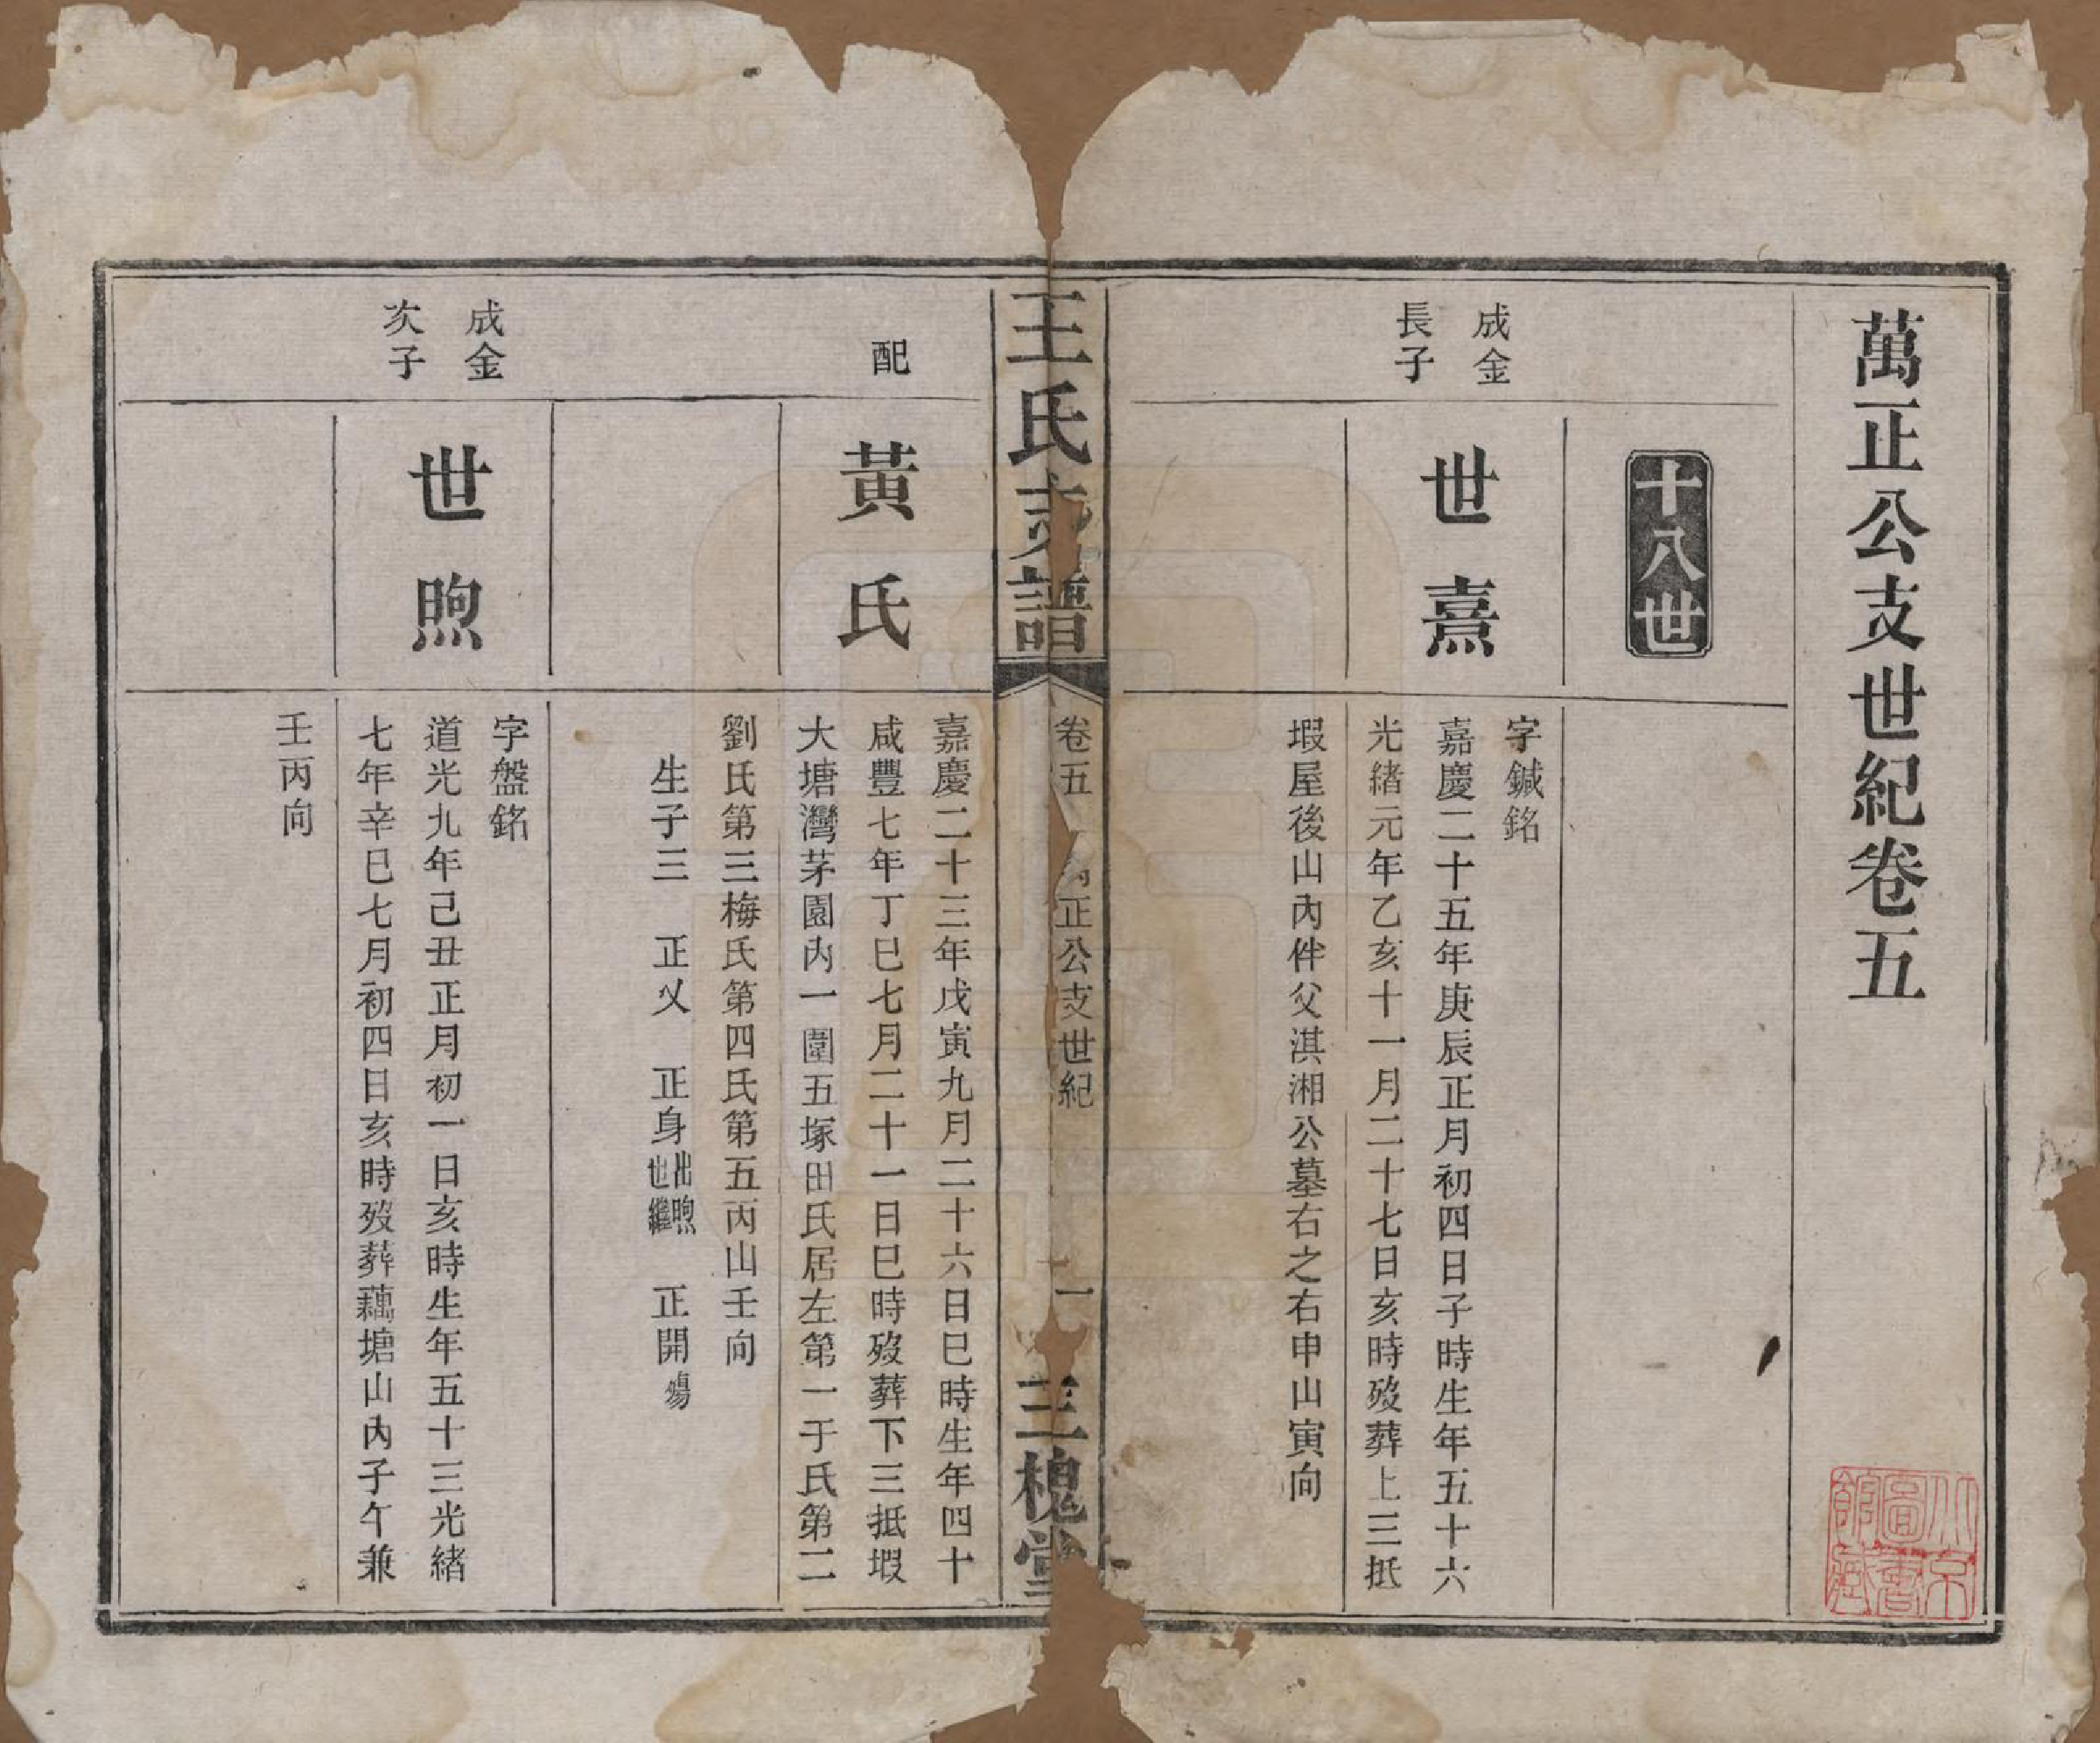 萬正公支世紀卷五
十八世
成金
長子
世熹
字鍼銘
嘉慶二十五年庚辰正月初四日子時生年五十六
光緒元年乙亥十一月二十七日亥時歿葬上三抵
塅屋後山內伴父淇湘公墓右之右申山寅向
王氏支譜
卷五
正公支世紀
一
三槐堂
配
黃氏
嘉慶二十三年戊寅九月二十六日巳時生年四十
咸豐七年丁巳七月二十一日巳時歿葬下三抵塅
大塘灣茅園內一圍五塚田氏居左第一于氏第二
劉氏第三梅氏第四氏第五丙山壬向
生子三 正乂 正身出繼世煦 正開殤
成金
次子
世煦
字盤銘
道光九年己丑正月初一日亥時生年五十三光緒
七年辛巳七月初四日亥時歿葬藕塘山內子午兼
壬丙向
北京圖書館藏